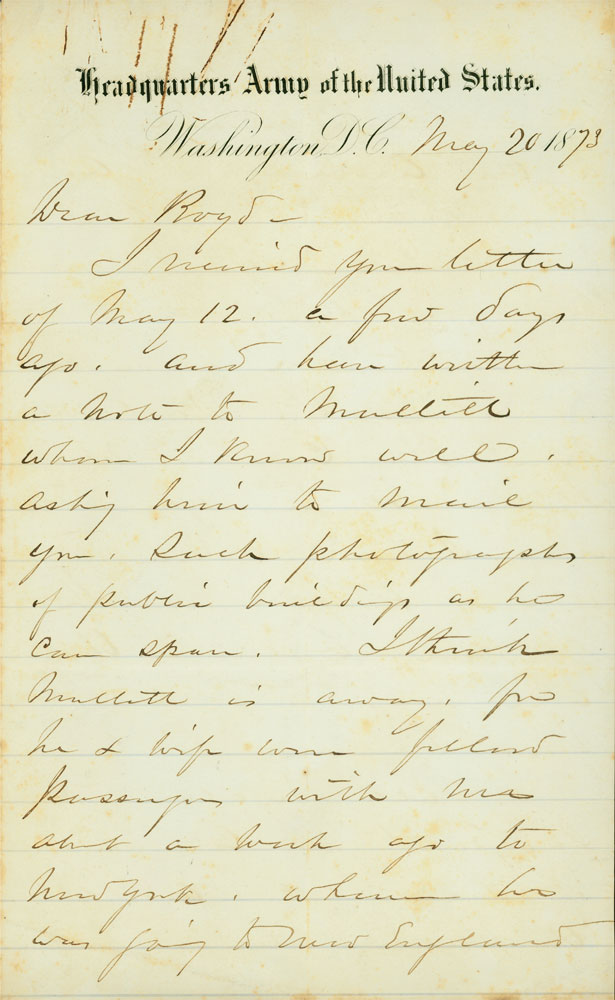 Headquarters Army of the United States.
Washington D.C. May 20 1873
Dear Boyd —
I received your letter
of May 12. a few days
ago. and have written
a note to Mullett
whom I know well.
asking him to mail
you. Such photographs
of public buildings as he
can spare. I think
Mullett is away. for
he & wife were fellow
passengers with me
about a week ago to
New York. whence he
was going to New England